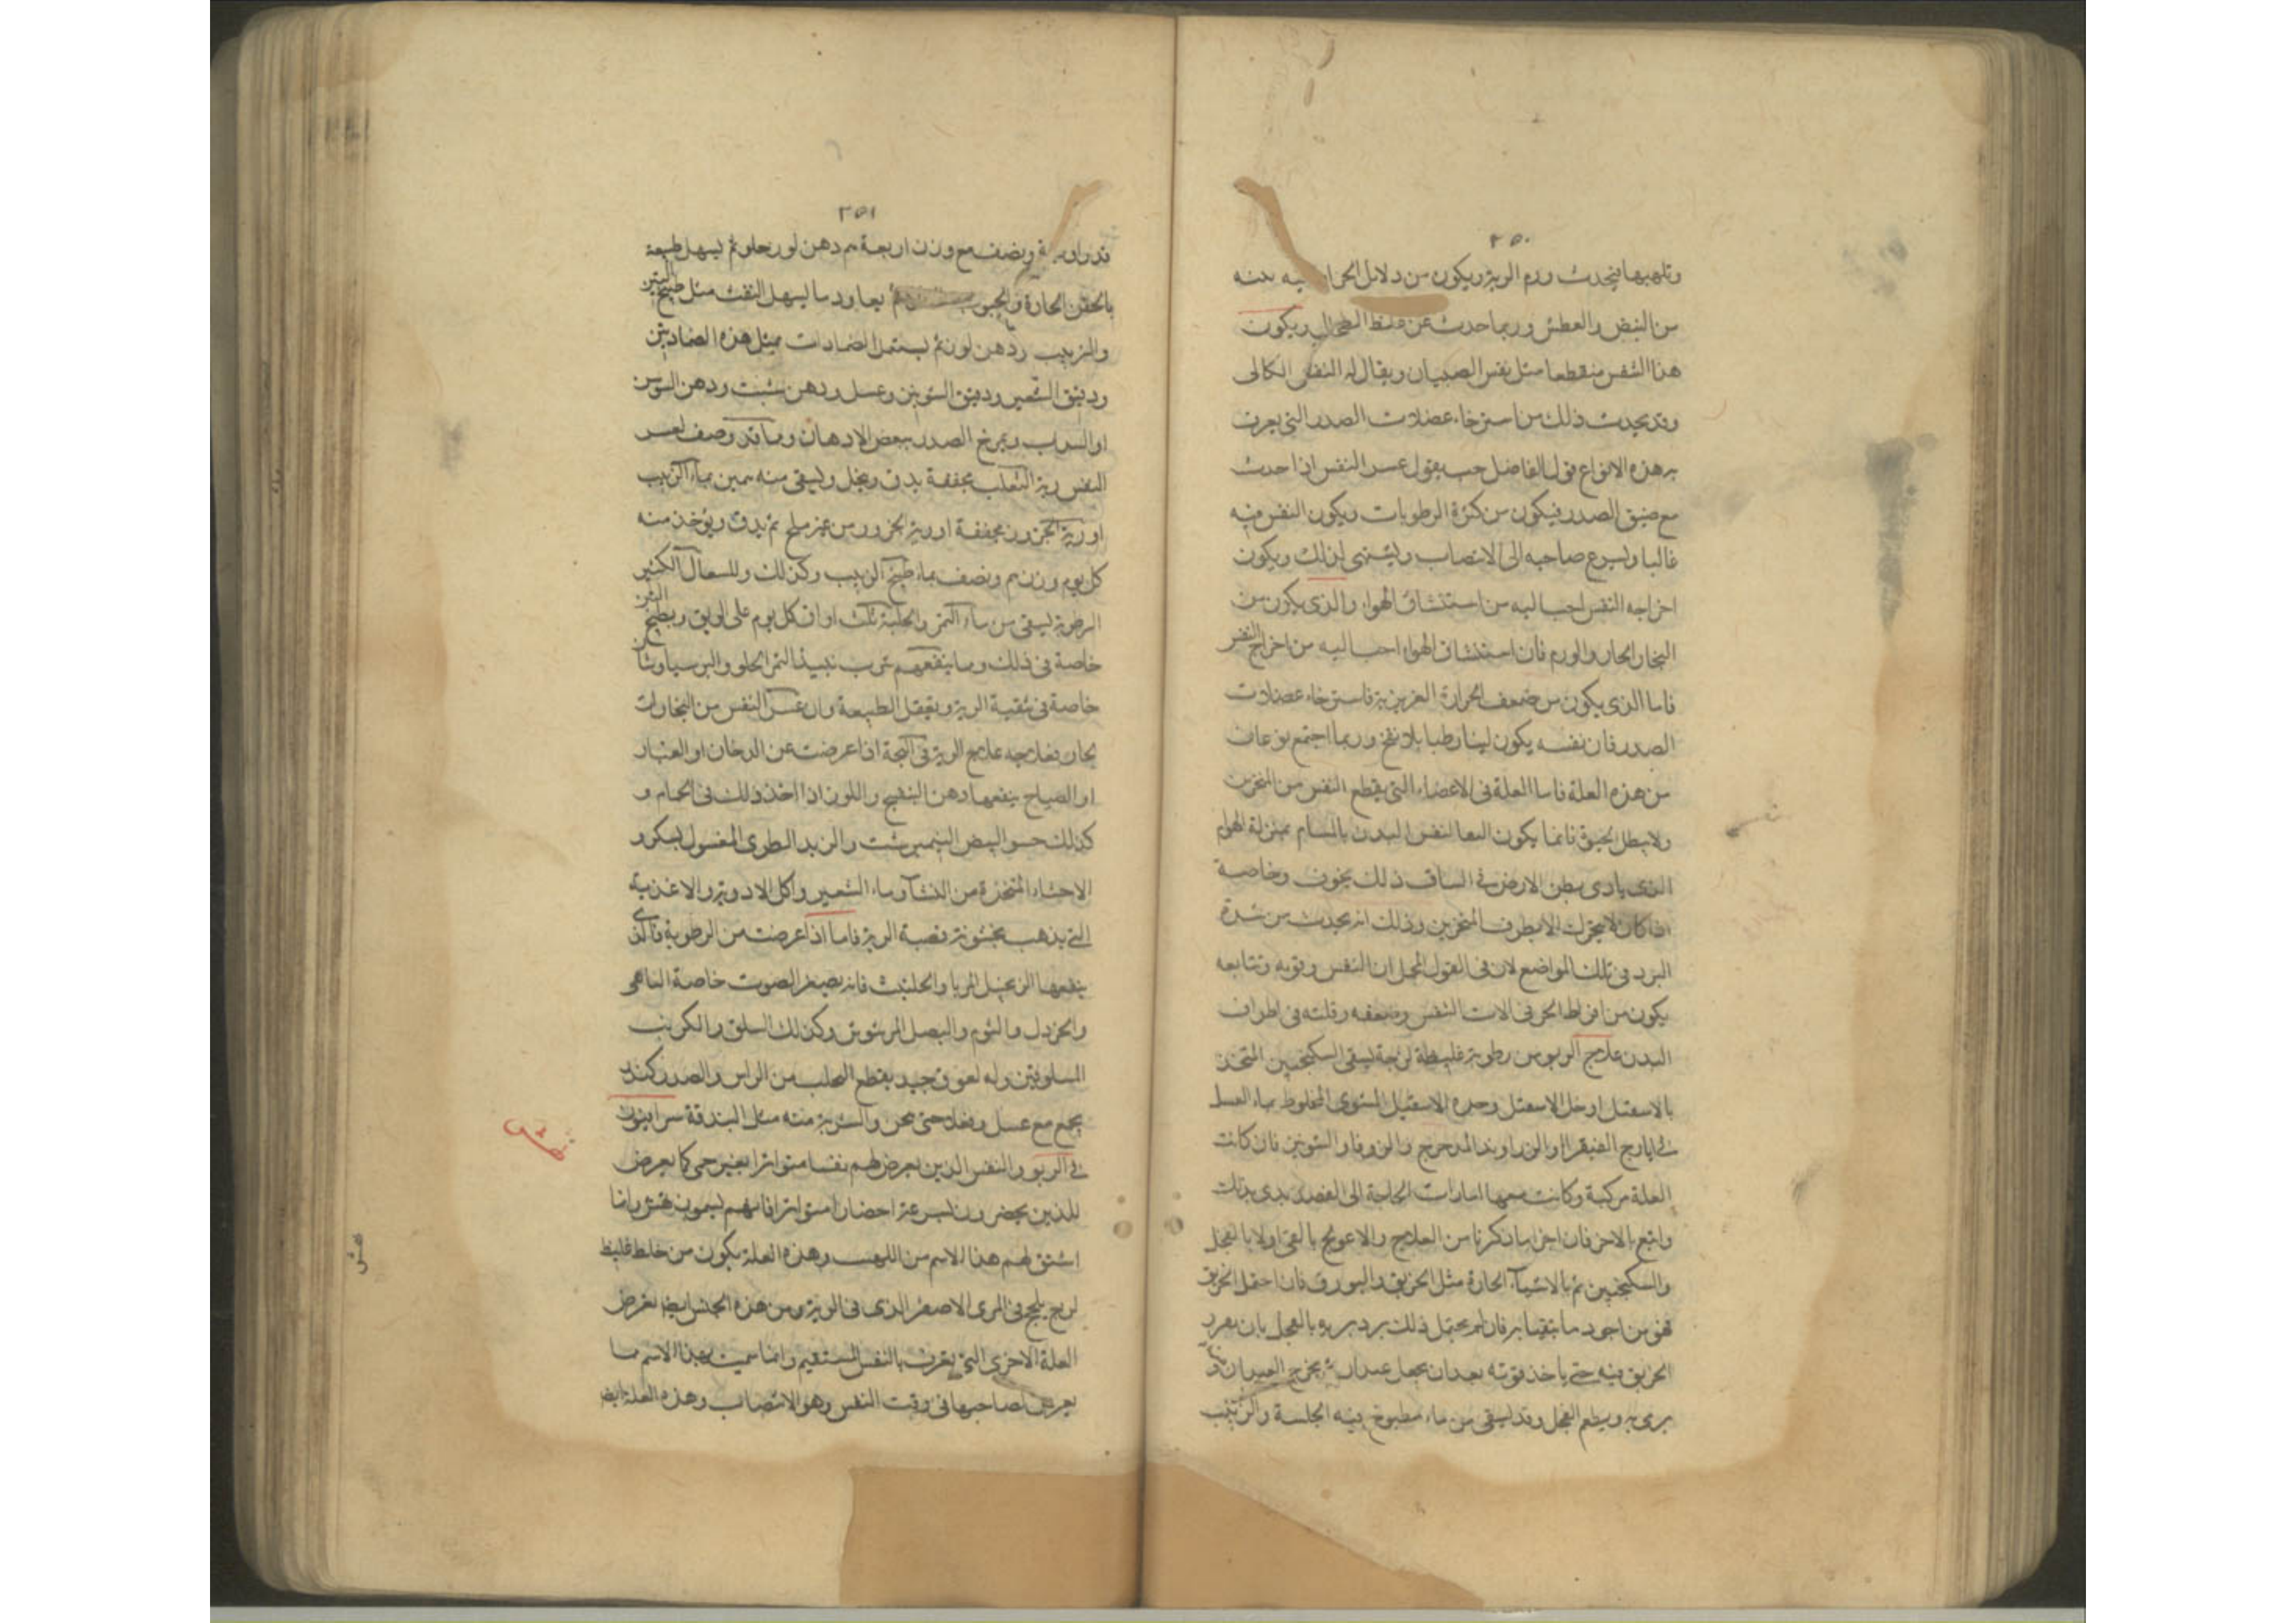 ٢٥٠
وتلهبها فيحدث ورم الرية ويكون من دلايل الحرا
من النبض والعطش وربما حدث عن غلظ الطحال ويكون
هذا النفس منقطعا مثل نفس الصبيان ويقال له النفس الكالى
وقد يحدث ذلك من استرخاء عضلات الصدر التى يعرف
بر هذه الانواع قول الفاضل حيث يقول عسر النفس اذا حدث
مع ضيق الصدر فيكون من كثرة الرطوبات ويكون النفس فيه
غالبا ويسرع صاحبه الى الانتصاب ويشتهى لذلك ويكون
اخراجه النفس احب اليه من استنشاق الهواء والذى يكون من
البخار الحار والورم فان استنشاق الهواء احب اليه من اخراج النفس
فاما الذى يكون من ضعف الحرارة الغريزية فاسترخاء عضلات
الصدر فان نفسه يكون لينا رطبا بلا نفخ وربما اجتمع نوعان
من هذه العلة فاما العلة فى الاعضاء التى يقطع النفس من المنخرين
ولا يبطل الحيوة فانما يكون النفس البدن بالمسام بمنزلة الهوام
الذى يادى ببطن الارض فى الساق ذلك بخوف وخاصة
اذا كان لا يتحرك الا بطرف المنخرين وذلك انه يحدث من شدة
البرد فى تلك المواضع لان فى القول المجمل ان النفس وقوته وتتابعه
يكون من افراط الحر فى الات النفس وضعفه وقلته فى اطراف
البدن علاج الربو من رطوبة غليظة لزجة يسقى السكنجبين المتخذ
بالاسقيل او خل الاسقيل وحده الاسقيل المشوى المخلوط بماء العسل
فى ايارج الفيقرا والزراوند المدحرج والزوفا والشونيز فان كانت
العلة مركبة وكانت معها امارات الحاجة الى الفصد بدى بذلك
واتبع بالاخر فان اجزا ما ذكرنا من العلاج والا عولج بالقى اولا بالفجل
والسكنجبين ثم بالاشياء الحارة مثل الخربق والبورق فان احتمل الخربق
فهو من اجود ما يتقيا به فان لم يحتمل ذلك برد بر وبالفجل بان يغرد
الخربق فيه حتى ياخذ قوته بعد ان يجعل عيدان ثم يخرج العيدان
يرى به ويطعم الفجل وقد يسقى من ماء مطبوخ فيه الحلبة والزبيب
نفس
٢٥١
قدر اوقية ونصف مع وزن اربعة م دهن لوز حلو ثم يسهل طبيعته
بالحقن الحارة والحبوب ثم يعاود ما يسهل النفث مثل طبيخ التين
والزبيب ودهن لوز ثم يستعمل الضمادات مثل هذه الضماد تين
ودقيق الشعير ودقيق الشونيز وعسل ودهن شبت ودهن السوسن
او السداب ويمرخ الصدر ببعض الادهان ومما قد وصف لعسر
النفس رية الثعلب مجففة يدق وينخل ويسقى منه بماء الزبيب
او رية الجزور مجففة او رية الجزور من غير ملح ثم يدق ويؤخذ منه
كل يوم وزن م ونصف بماء طبيخ الزبيب وكذلك وللسعال الكثير
الرطوبة يسقى من ماء التمر والحلبة ثلث اواق كل يوم على الريق وبطبيخ التين
خاصة فى ذلك ومما ينفعهم شرب نبيذ التمر الحلو والبرسياوشان
خاصة فى تنقية الرية ويعقل الطبيعة وان عسر النفس من البخارات
بحار فعلاجه علاج الرية فى البحة اذا عرضت عن الدخان او الغبار
او الصياح ينفعها دهن البنفسج واللوز اذا اخذ ذلك فى الحمام و
كذلك حسو البيض النيمبرشت والزبد الطرى المغسول بسكر و
الاحشاء المتخذة من النشا وماء الشعير واكل الادوية والاغذية
التى يذهب بخشونة قصبة الرية فاما اذا عرضت من الرطوبة
ينفعها الزنجبيل المربا والحلتيت فانه يصفى الصوت خاصة
والخردل والثوم والبصل المرشوش وكذلك السلق والكرنب
المسلوقين وله لعوق جيد يقطع الحلب من الراس والصدر كندر
يجمع مع عسل ويغلا حتى يثخن والشربة منه مثل البندقة سرابيون
فى الربو والنفس الذين يعرض لهم نفسا متواترا بغير حمى كما يعرض
للذين يحضرون بسرعة احضارا متواترا فانهم يسمون وانما
اشتق لهم هذا الاسم من اللهب وهذه العلة يكون من خلط غليظ
لزج يلحج فى الرى الاصغر الذى فى الرية ومن هذه الجنس ايضا يعرض
العلة الاخرى التى يعرف بالنفس المستقيم وانما سميت بهذا الاسم مما
يعرض لصاحبها فى وقت النفس وهو الانتصاب وهذه العلة ايضا